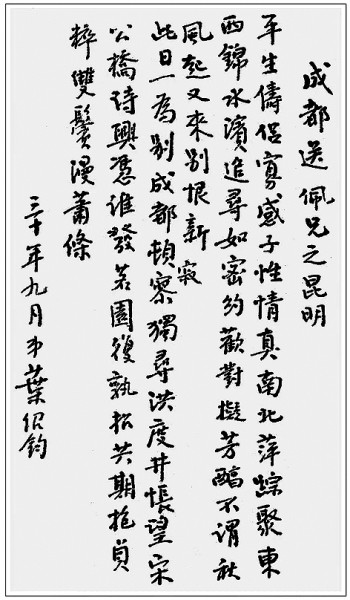 成都送佩兄之昆明
平生儔侶寡感子性情真南北萍踪聚東
西錦水濱追尋如密約歡對擬芳醕不謂秋
風起又來別恨新
此日一為別成都頓寂寥獨尋洪度井悵望宋
公橋詩興憑誰發茗園復孰招共期抱貞
粹雙鬢漫蕭條
三十年九月弟葉紹鈞